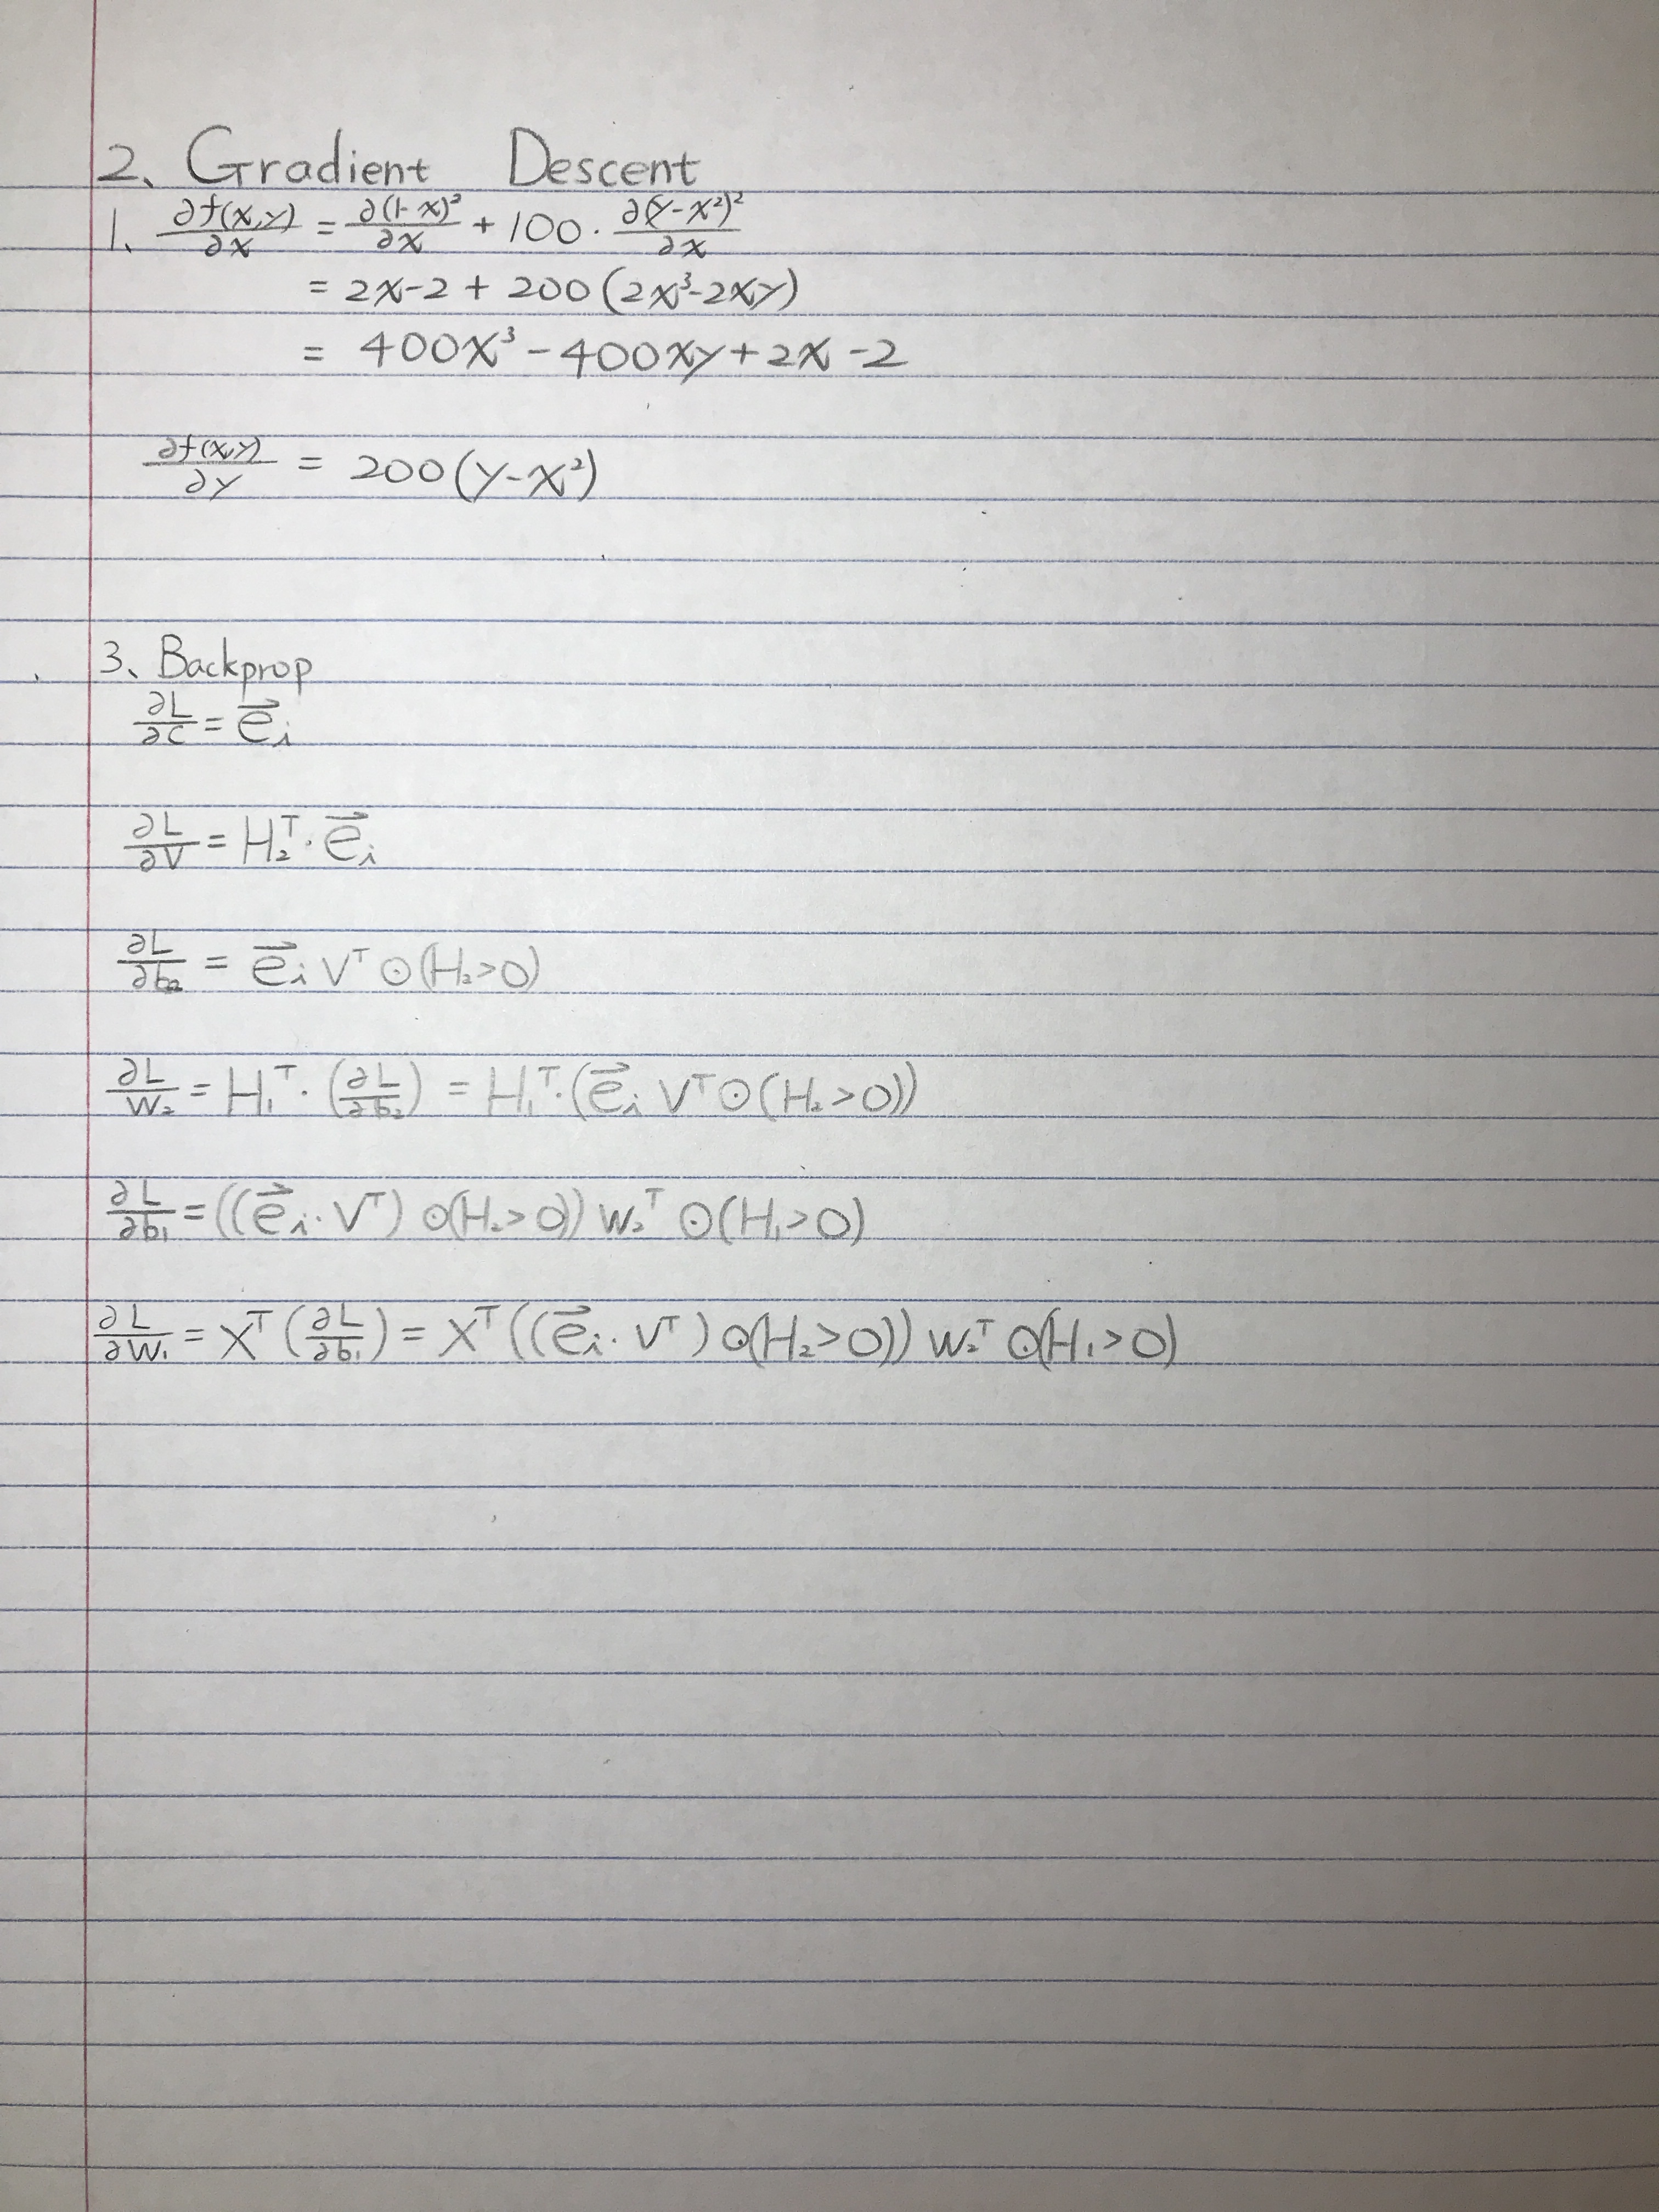 2、 Gradient Descent
1、 ∂f(x,y)/∂x = ∂(1-x)²/∂x + 100 · ∂(y-x²)²/∂x
= 2x-2 + 200(2x³-2xy)
= 400x³ - 400xy + 2x - 2
∂f(x,y)/∂y = 200(y-x²)
3、 Backprop
∂L/∂C = e⃗ᵢ
∂L/∂V = H₂ᵀ · e⃗ᵢ
∂L/∂b₂ = e⃗ᵢ Vᵀ ⊙ (H₂>0)
∂L/W₂ = H₁ᵀ · (∂L/∂b₂) = H₁ᵀ · (e⃗ᵢ Vᵀ ⊙ (H₂>0))
∂L/∂b₁ = ((e⃗ᵢ · Vᵀ) ⊙ (H₂>0)) W₂ᵀ ⊙ (H₁>0)
∂L/∂W₁ = Xᵀ (∂L/∂b₁) = Xᵀ((e⃗ᵢ · Vᵀ) ⊙ (H₂>0)) W₂ᵀ ⊙ (H₁>0)